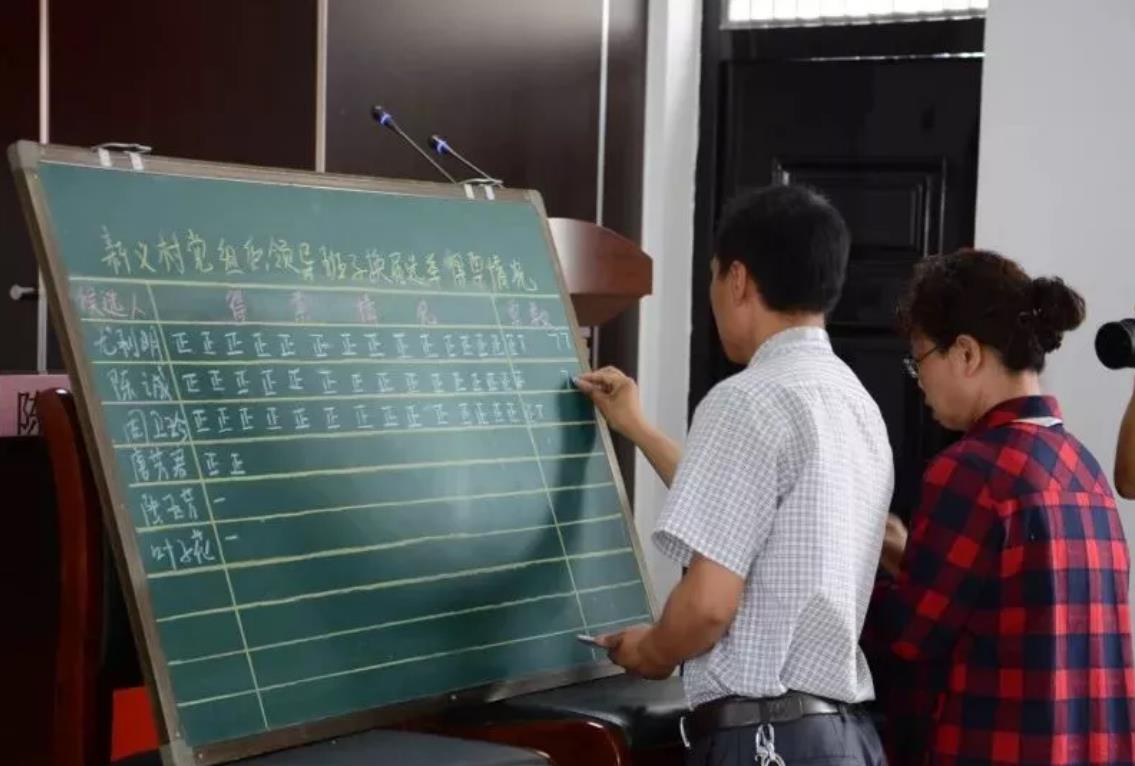 新义村党组织领导班子换届选举得票情况
候选人 得票情况 票数
尤利明 正正正正正正正正正正正正正正正丅 77
陈诚 正正正正正正正正正正正正正正正 7
正正正正正正正正正正正正正正正丅
唐芳君 正正
陈玉芳 一
叶 一
陈